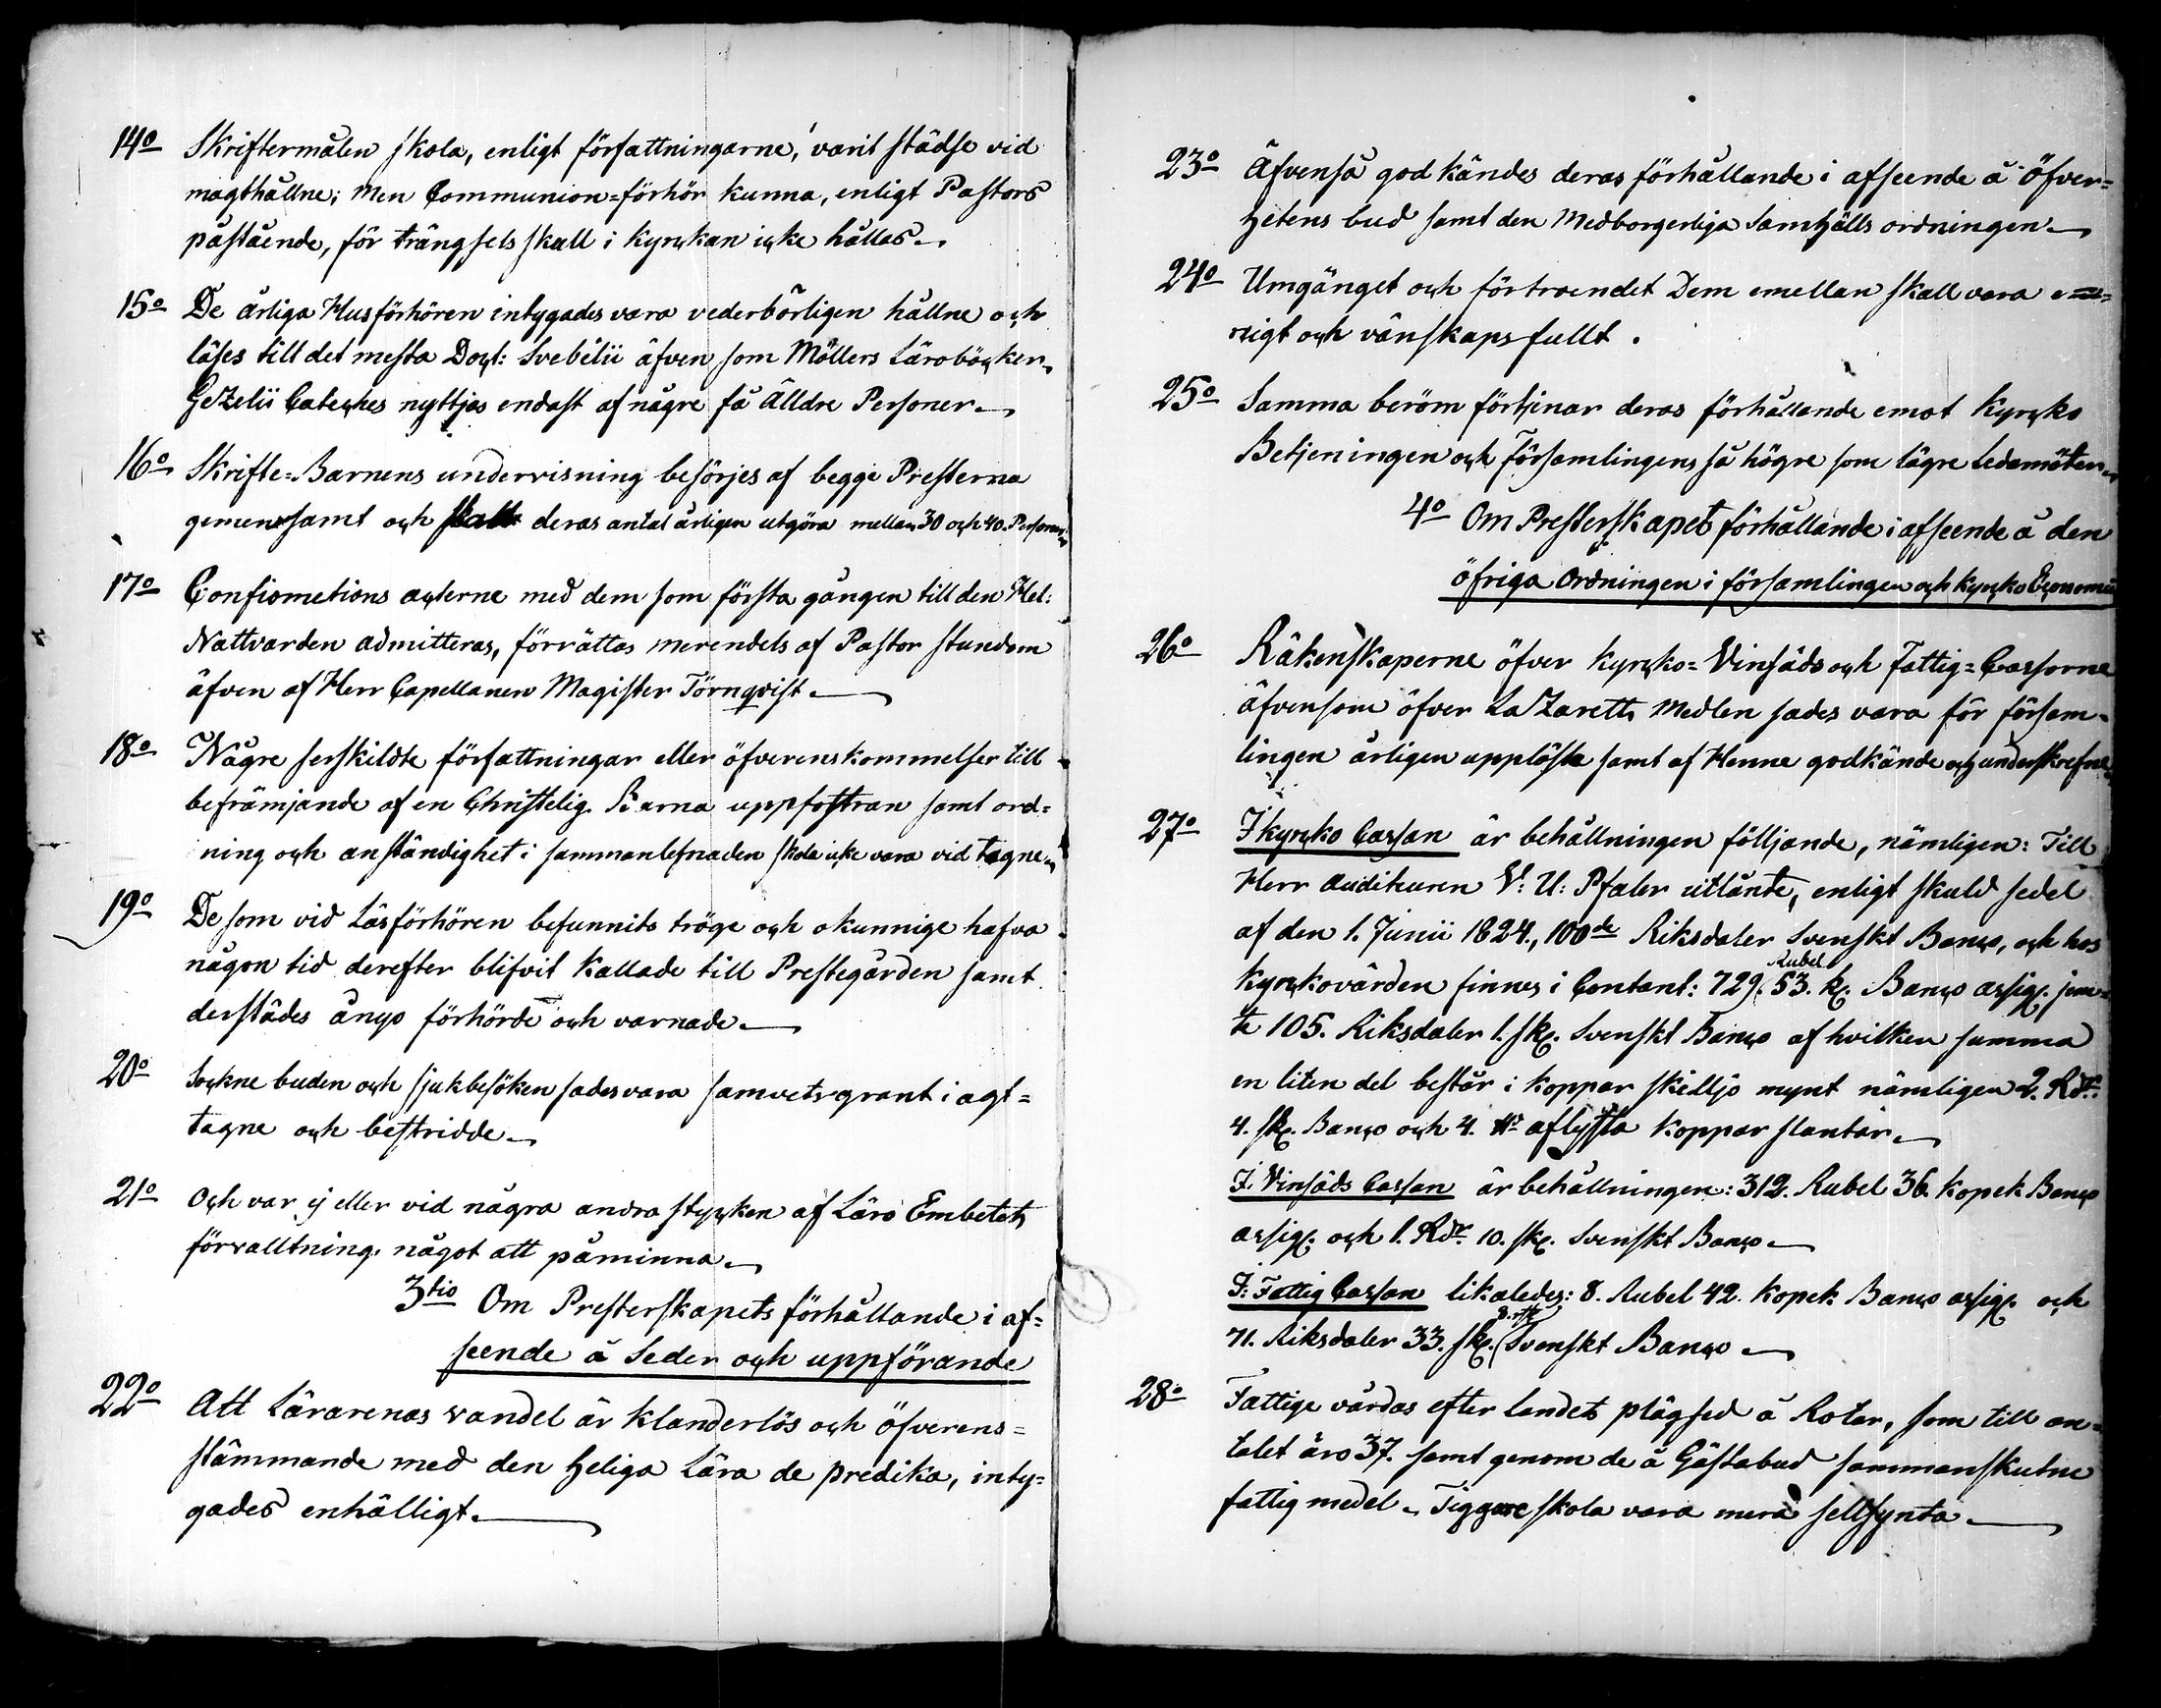 14º Skriftermålen skola, enligt författningarne, varit städse vid
magthållne; men Communion=förhör kunna, enligt Pastors
påstående, för trängsels skull i kyrckan icke hållas.
15º De årliga Husförhören intygades vara vederbörligen hållne och
läses till det mesta Doct: Svebelii äfven som Möllers Läroböcker,
Gezelii Cateches nyttjas endast af någre få Älldre Personer.
16º Skrifte=Barnens undervisning besörjes af begge Presterna
gemensamt och deras antal årligen utgöra mellan 30 och 40. Personer
17º Confiometions acterne med dem som första gången till den Hel:
Nattvarden admitteras, förrättas merendels af Pastor stundom
äfven af Herr Capellanen Magister Törnqvist.
18º Någre serskildte författningar eller öfverenskommelser till
befrämjande af en Christelig Barna uppfostran samt ord=
ning och anständighet i sammanlefnaden skola icke vara vid tagne.
19º De som vid Läsförhören befunnits tröge och okunnige hafva
någon tid derefter blifvit kallade till Prestegården samt
derstädes ånyo förhörde och varnade.
20º Sockne buden och sjukbesöken sades vara samvetsgrant i agt=
tagne och bestridde.
21º Och var ej eller vid några andra stycken af Läro Embetets
förvalltning något att påminna.
3tio Om Presterskapets förhållande i af=
seende å Seder och uppförande
22º Att Lärarenas vandel är klanderlös och öfverens=
stämmande med den heliga Lära de predika, inty=
gades enhälligt.
23º Äfvenså godkändes deras förhållande i afseende å Öfver=
hetens bud samt den Medborgerliga Samhälls ordningen.
24º Umgänget och förtroendet Dem emellan skall vara
nigt och vänskapsfullt.
25º Samma beröm förtjenar deras förhållande emot Kyrcko
Betjeningen och Församlingens så högre som lägre Ledamöter.
4º Om Presterskapets förhållande i afseende å den
öfriga Ordningen i församlingen och kyrcko Economie
26º Räkenskaperne öfver kyrcko= Vinsäds och Fattig=Cassorne
äfvensom öfver Lazaretts Medlen sades vara för försam=
lingen årligen upplöste samt af Henne godkände och underskrefne
27º I kyrcko Cassan är behållningen följjande, nämligen: Till
Herr Auditeuren V: U: Pfaler utlånte, enligt skuld sedel
af den 1. Junii 1824., 100de Riksdaler Svenskt Banco, och hos
Rubel
kyrckovärden finnes i Contant: 729. 53. k. Banco assig. jem=
te 105. Riksdaler 1. sk. Svenskt Banco af hvilken summa
en liten del består i koppar skilljo mynt nämligen 2. Rdr.
4. sk. Banco och 4. aflysta koppar slantar.
I. Vinsäds Cassan är behållningen: 312. Rubel 36. kopek Banco
assig. och 1. Rdr. 10. sk. Svenskt Banco.
I: Fattig Cassan likaledes: 8. Rubel 42. kopek Banco assig. och
71. Riksdaler 33. sk. Svenskt Banco.
28º Fattige vårdas efter landets plägsed å Rotar, som till an=
talet äro 37. samt genom de å Gästabud sammanskutne
fattig medel. Tiggare skola vara mera sellsynta.